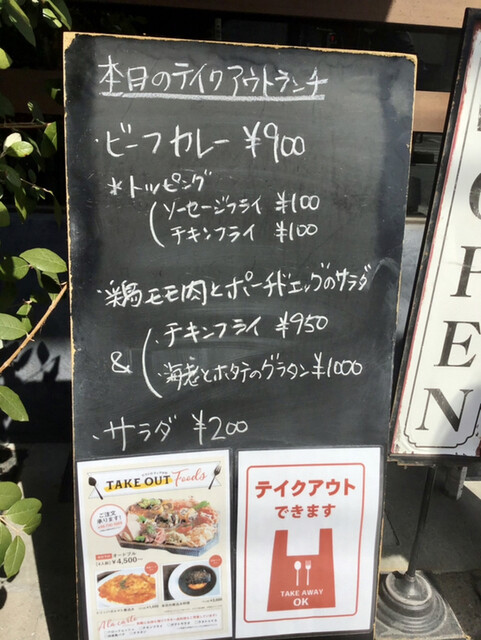 本日のテイクアウトランチ
・ビーフカレー ¥900
*トッピング
ソーセージフライ ¥100
チキンフライ ¥100
・鶏モモ肉とポーチドエッグのサラダ
&
・チキンフライ ¥950
・海老とホタテのグラタン ¥1000
・サラダ ¥200
TAKE OUT Foods
ご注文
承ります!
オードブル
¥4,500
A la carte
テイクアウト
できます
TAKE AWAY
OK
OPEN